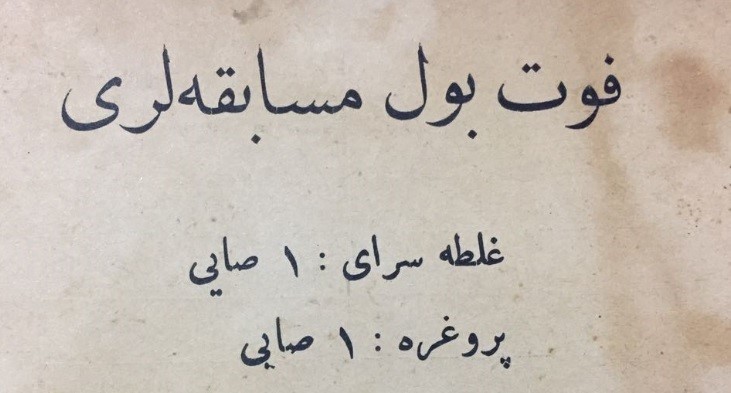 فوت بول مسابقه‌لری
غلطه سرای : ١ صایی
پروغره : ١ صابی